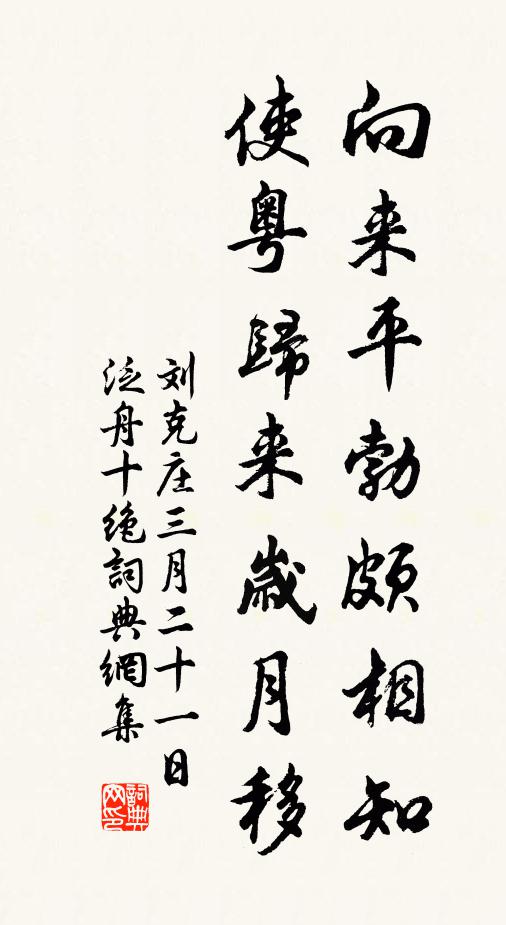 向来平勃頗相知
使粵歸来歲月移
刘克庄三月二十一日
泛舟十绝詞典網集
詞典
网印